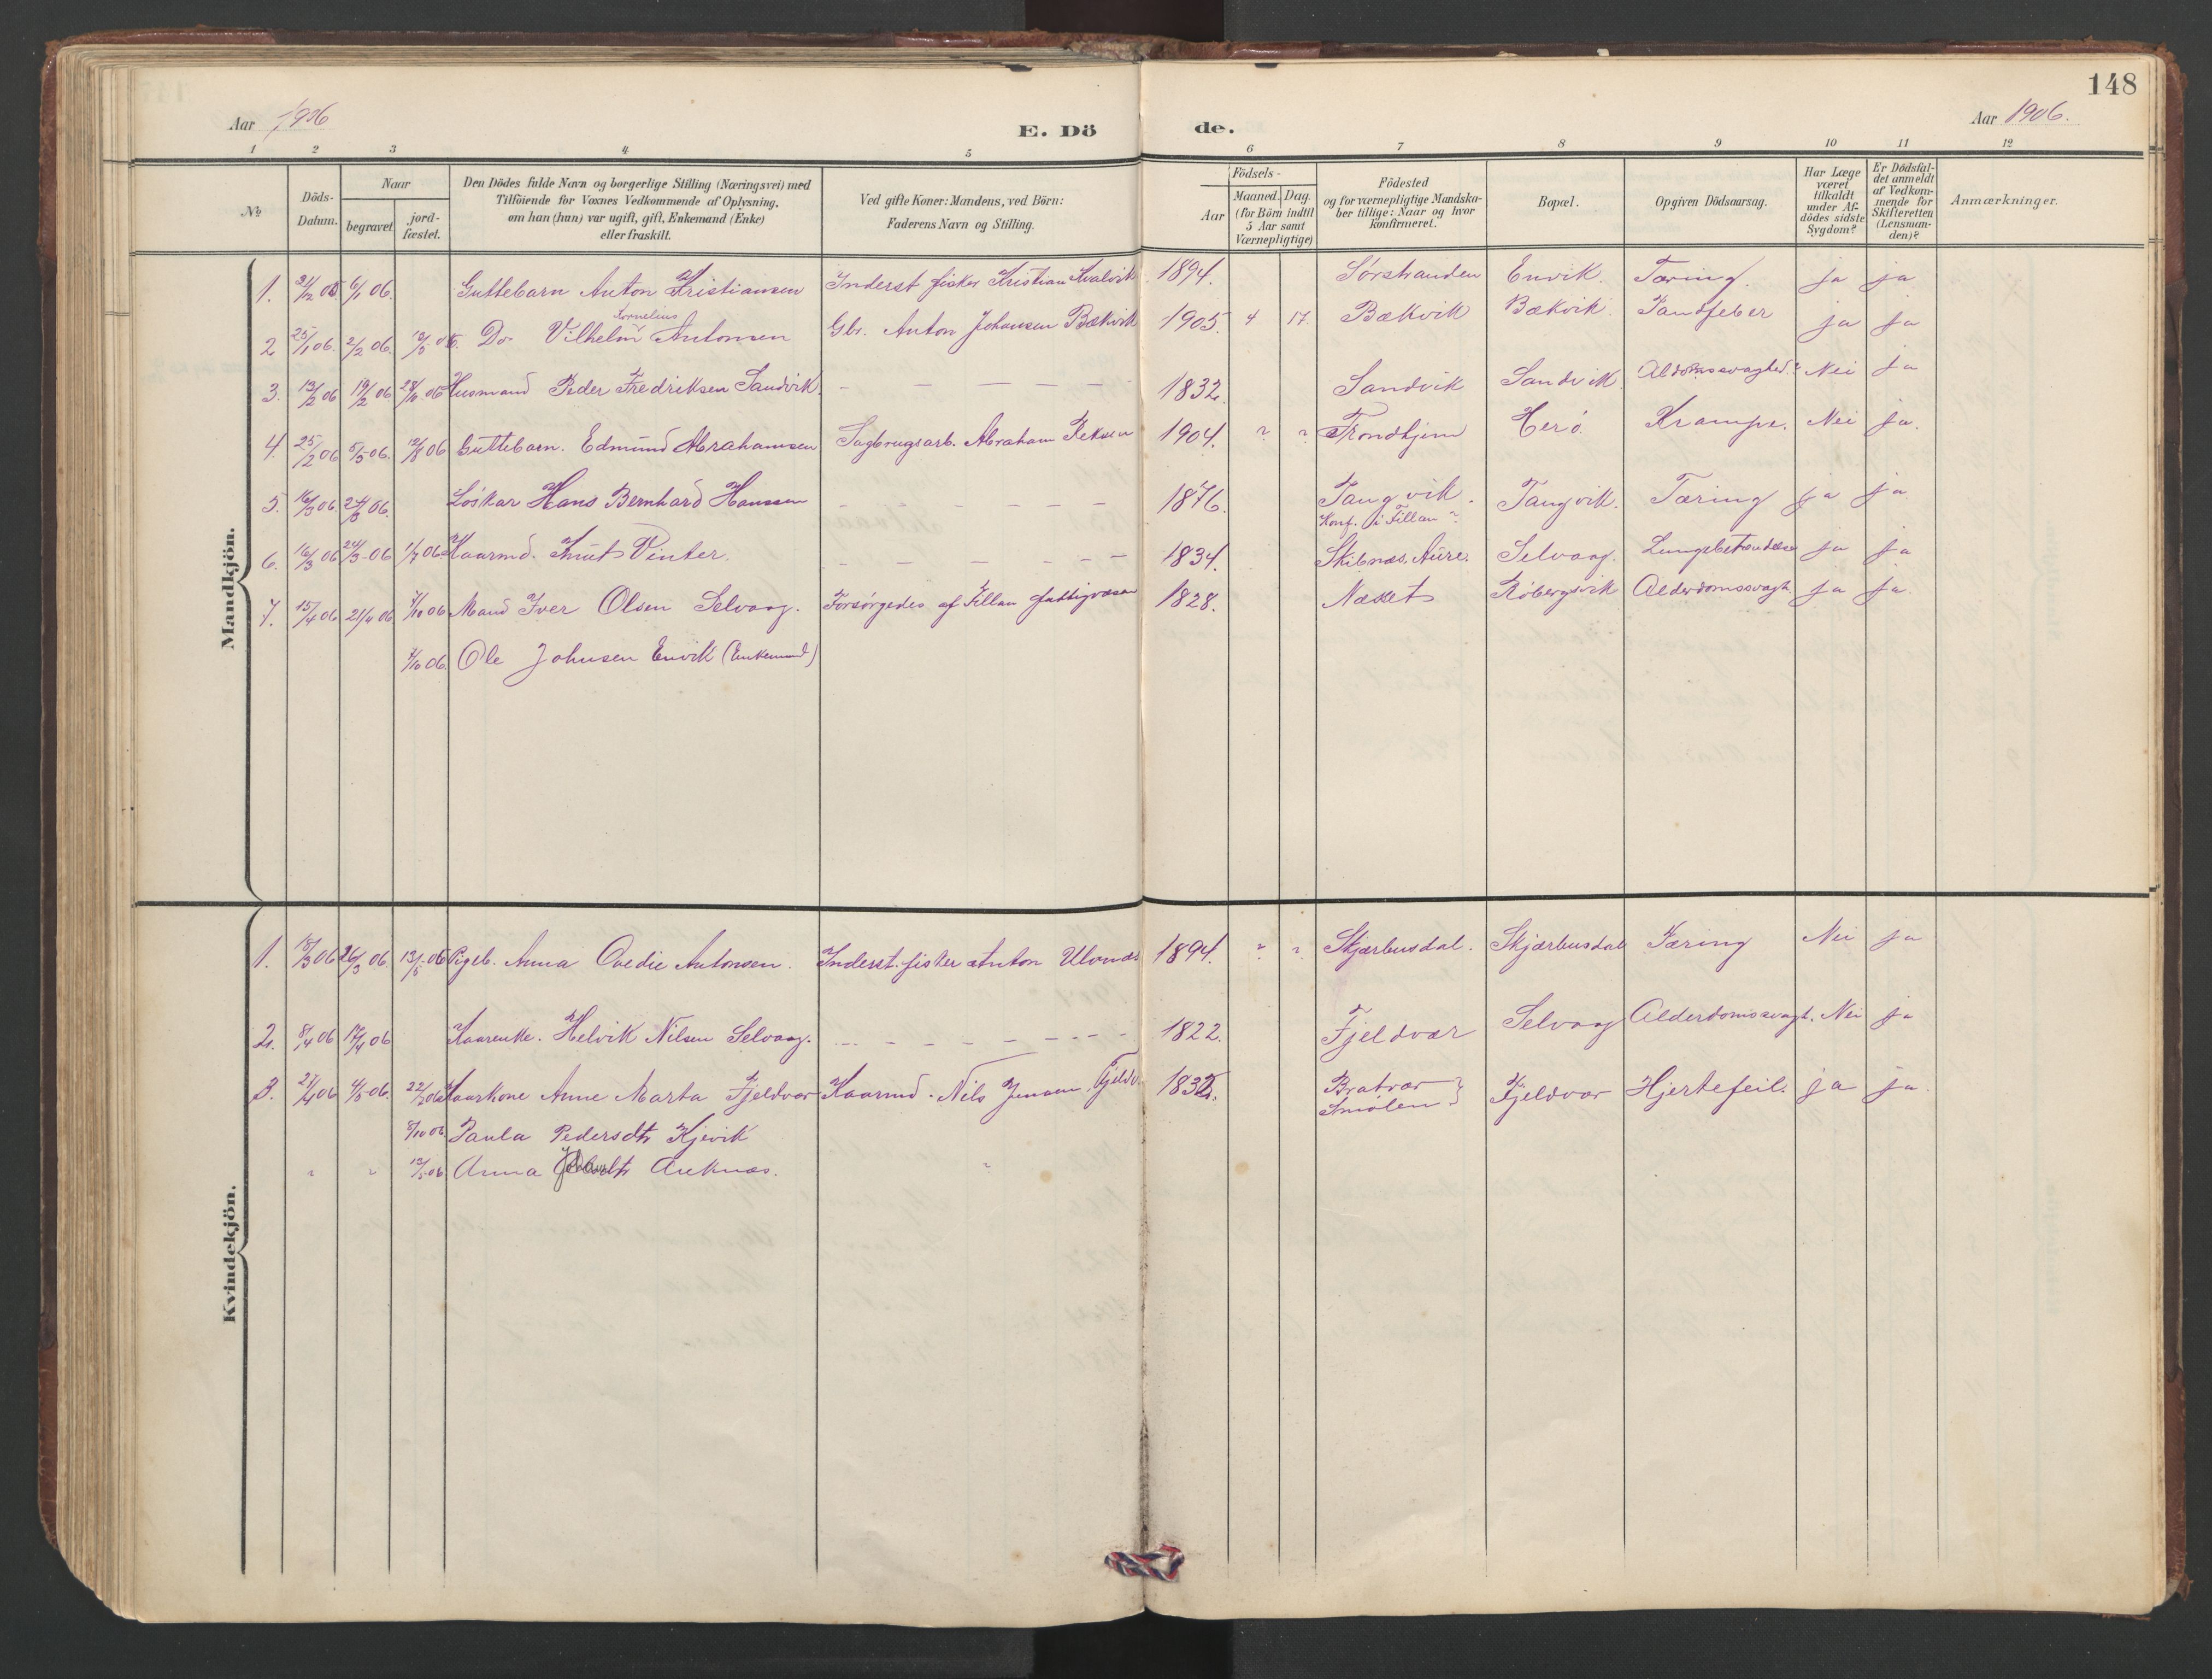 148
Aar 1906
E. Dö de.
Aar 1906.
1 2 3 4 5 6 7 8 9 10 11 12
No
Döds-Datum.
Naar
begravet.
jord-fæstet.
Den Dödes fulde Navn og borgerlige Stilling (Næringsvei) med
Tilföiende for Voxnes Vedkommende af Oplysning,
om han (hun) var ugift, gift, Enkemand (Enke)
eller fraskilt.
Ved gifte Koner: Mandens, ved Börn:
Faderens Navn og Stilling.
Födsels-
Aar
Maaned. Dag.
(for Börn indtil
5 Aar samt
Værnepligtige)
Födested
og for værnepligtige Mandska-
ber tillige: Naar og hvor
konfirmeret.
Bopæl.
Opgiven Dödsaarsag.
Har Læge
været
tilkaldt
under Af-
dödes sidste
Sygdom?
Er Dödsfal-
det anmeldt
af Vedkom-
mende for
Skifteretten
(Lensman-
den)?
Anmærkninger.
Mandkjön.
1. 31/12 05 6/1 06. Guttebarn Anton Kristiansen Inderst fisker Kristian Kvalvik 1894. Sørstranden Envik. Tæring. ja ja
Kornelius
2 25/1 06. 2/2 06. Do Vilhelm Antonsen Gbr. Anton Johansen Bækvik 1905. 4 17 Bækvik Bækvik. Tandfeber ja ja
3. 13/2 06 19/2 06 Husmand Peder Fredriksen Sandvik. — — — — 1832. Sandvik Sandvik Alderdomssvaghed. Nei ja
4. 25/2 06 5/3 06. 12/8 06 Guttebarn. Edmund Abrahamsen Sagbrugsarb. Abraham 1904. " " Trondhjem Herö Krampe. Nei ja.
5. 16/3 06 24/3 06. Löskar Hans Bernhard Hanssen — — — — 1876. Tangvik. Tangvik. Tæring ja ja
Konf. i Fillan
6. 16/3 06 24/3 06 1/7 06 Kaarmd. Knut Vinter. — — — — 1834. Skibnæs, Aure. Selvaag. Lungebetændelse ja ja
7. 15/4 06 21/4 06 7/10 06 Mand Iver Olsen Selvaag. Forsørgedes af Fillan fattigvæsen 1828. Næsset Røbergsvik Alderdomssvagh. ja ja
7/10 06. Ole Johnsen Envik (Enkemand)
Kvindekjön.
1. 18/3 06 26/3 06. 13/5 06 Pigeb. Anna Ovedie Antonsen. Inderst. fisker Anton Ulvnæs 1894. " " Skjærbusdal. Skjærbusdal Tæring Nei ja
2. 8/4 06 17/4 06 Kaarenke. Helvik Nilsen Selvaag. — — — — 1822. Fjeldvær Selvaag Alderdomssvagh. Nei ja
3. 27/4 06 4/5 06. 22/7 06 Kaarkone Anne Marta Fjeldvær Kaarmd. Nils Jensen Fjeldv. 1832. Bratvær Fjeldvær Hjertefeil. ja ja
Smølen
8/10 06 Paula Pedersdtr Kjevik
" " 06 Anna Auknæs. "